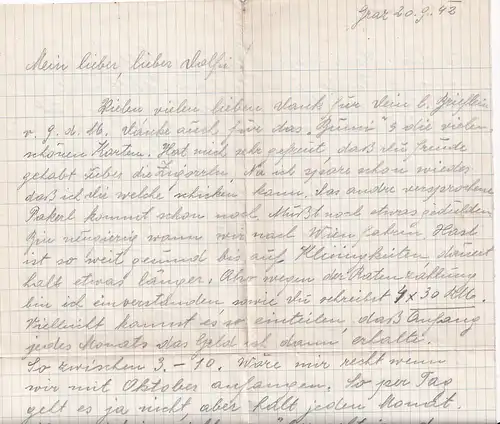 Graz 20.9.42
Mein lieber, lieber Dolfi.
Vielen vielen lieben Dank für Dein l. Brieflein
v. 9. d. M. Danke auch für das "Bummi" & die vielen
schönen Karten. Hat mich sehr gefreut, daß Du Freude
gehabt hast über die Zigarren. Na ich spare schon wieder
daß ich Dir welche schicken kann. Das andre versprochene
Pakerl kommt schon noch. Mußt noch etwas gedulden
Bin neugierig wann wir nach Wien fahren. Hast
ist so weit gesund bis auf Kleinigkeiten, dauert
halt etwas länger. Also wegen der Ratenzahlung
bin ich einverstanden sowie Du schreibst 4 x 30 RM.
Vielleicht kannst es so einteilen, daß Anfang
jedes Monats das Geld ich dann erhalte.
So zwischen 3. - 10. Wäre mir recht wenn
wir mit Oktober anfangen. So per Tag
gelt es ja nicht aber halt jeden Monat.